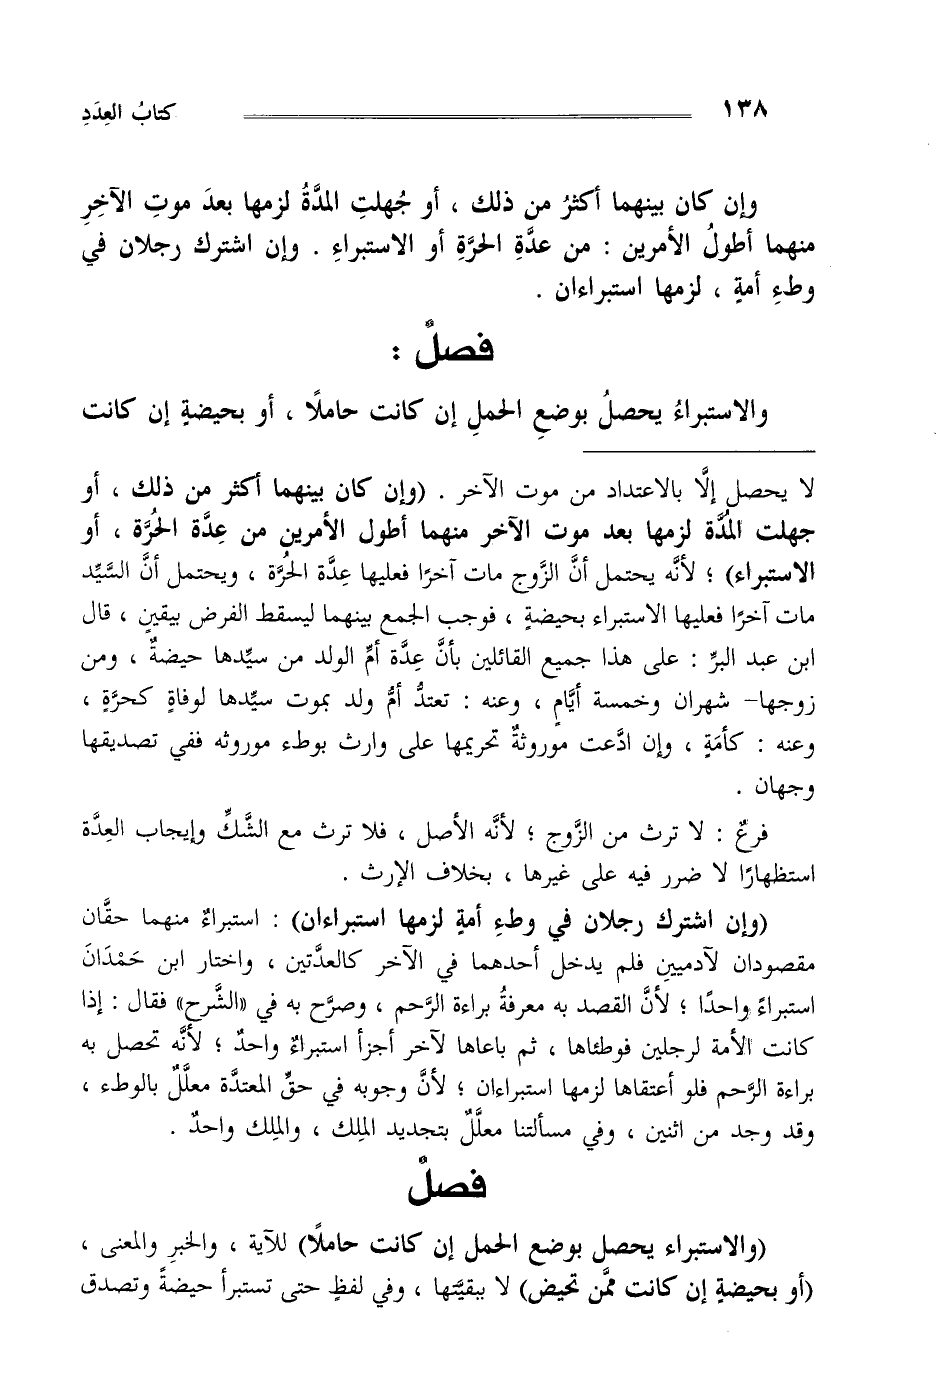 ١٣٨
كتابُ العِدَدِ
وإن كان بينهما أكثرُ من ذلك ، أو جُهلتِ المدَّةُ لزمها بعدَ موتِ الآخِرِ
منهما أطولُ الأمرين : من عدَّةِ الحرَّةِ أو الاستبراءِ . وإن اشترك رجلان في
وطءِ أمةٍ ، لزمها استبراءان .
فصلٌ :
والاستبراءُ يحصلُ بوضعِ الحملِ إن كانت حاملًا ، أو بحيضةٍ إن كانت
لا يحصل إلَّا بالاعتداد من موت الآخر . (وإن كان بينهما أكثر من ذلك ، أو
جهلت المُدَّة لزمها بعد موت الآخر منهما أطول الأمرين من عِدَّة الحُرَّة ، أو
الاستبراء) ؛ لأنَّه يحتمل أنَّ الزَّوج مات آخرًا فعليها عِدَّة الحُرَّة ، ويحتمل أنَّ السَّيِّد
مات آخرًا فعليها الاستبراء بحيضةٍ ، فوجب الجمع بينهما ليسقط الفرض بيقينٍ ، قال
ابن عبد البرِّ : على هذا جميع القائلين بأنَّ عِدَّة أمِّ الولد من سيِّدها حيضةٌ ، ومن
زوجها- شهران وخمسة أيَّامٍ ، وعنه : تعتدُّ أمُّ ولد بموت سيِّدها لوفاةٍ كحرَّةٍ ،
وعنه : كأمَةٍ ، وإن ادَّعت موروثةٌ تحريمها على وارث بوطء موروثه ففي تصديقها
وجهان .
فرعٌ : لا ترث من الزَّوج ؛ لأنَّه الأصل ، فلا ترث مع الشَّكِّ وإيجاب العِدَّة
استظهارًا لا ضرر فيه على غيرها ، بخلاف الإرث .
(وإن اشترك رجلان في وطءِ أمةٍ لزمها استبراءان) : استبراءٌ منهما حقَّان
مقصودان لآدميينِ فلم يدخل أحدهما في الآخر كالعدَّتين ، واختار ابن حَمْدَانَ
استبراءً واحدًا ؛ لأنَّ القصد به معرفةُ براءة الرَّحم ، وصرَّح به في «الشَّرح» فقال : إذا
كانت الأمة لرجلين فوطئاها ، ثم باعاها لآخر أجزأ استبراءٌ واحدٌ ؛ لأنَّه تحصل به
براءة الرَّحم فلو أعتقاها لزمها استبراءان ؛ لأنَّ وجوبه في حقِّ المعتدَّة معلَّلٌ بالوطء ،
وقد وجد من اثنين ، وفي مسألتنا معلَّلٌ بتجديد المِلك ، والمِلك واحدٌ .
فصلٌ
(والاستبراء يحصل بوضع الحمل إن كانت حاملًا) للآية ، والخبرِ والمعنى ،
(أو بحيضةٍ إن كانت ممَّن تحيض) لا ببقيَّتها ، وفي لفظٍ حتى تستبرأ حيضةً وتصدق